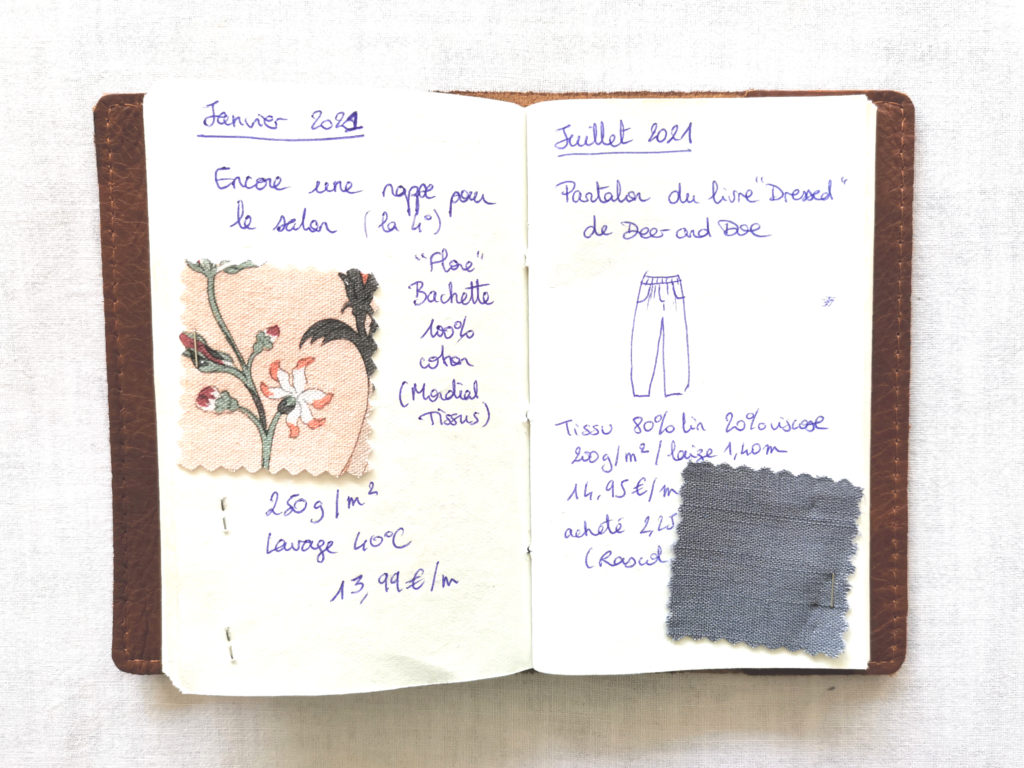 Janvier 2021
Encore une nappe pour
le salon (la 4°)
"Flore"
Bachette
100%
coton
(Mondial
Tissus)
250g/m²
lavage 40°C
13,99€/m
Juillet 2021
Pantalon du livre "Dressed"
de Deer and Doe
Tissu 80% lin 20% viscose
200g/m² / laize 1,40m
14,95€/m
acheté 2,25
(Rascol